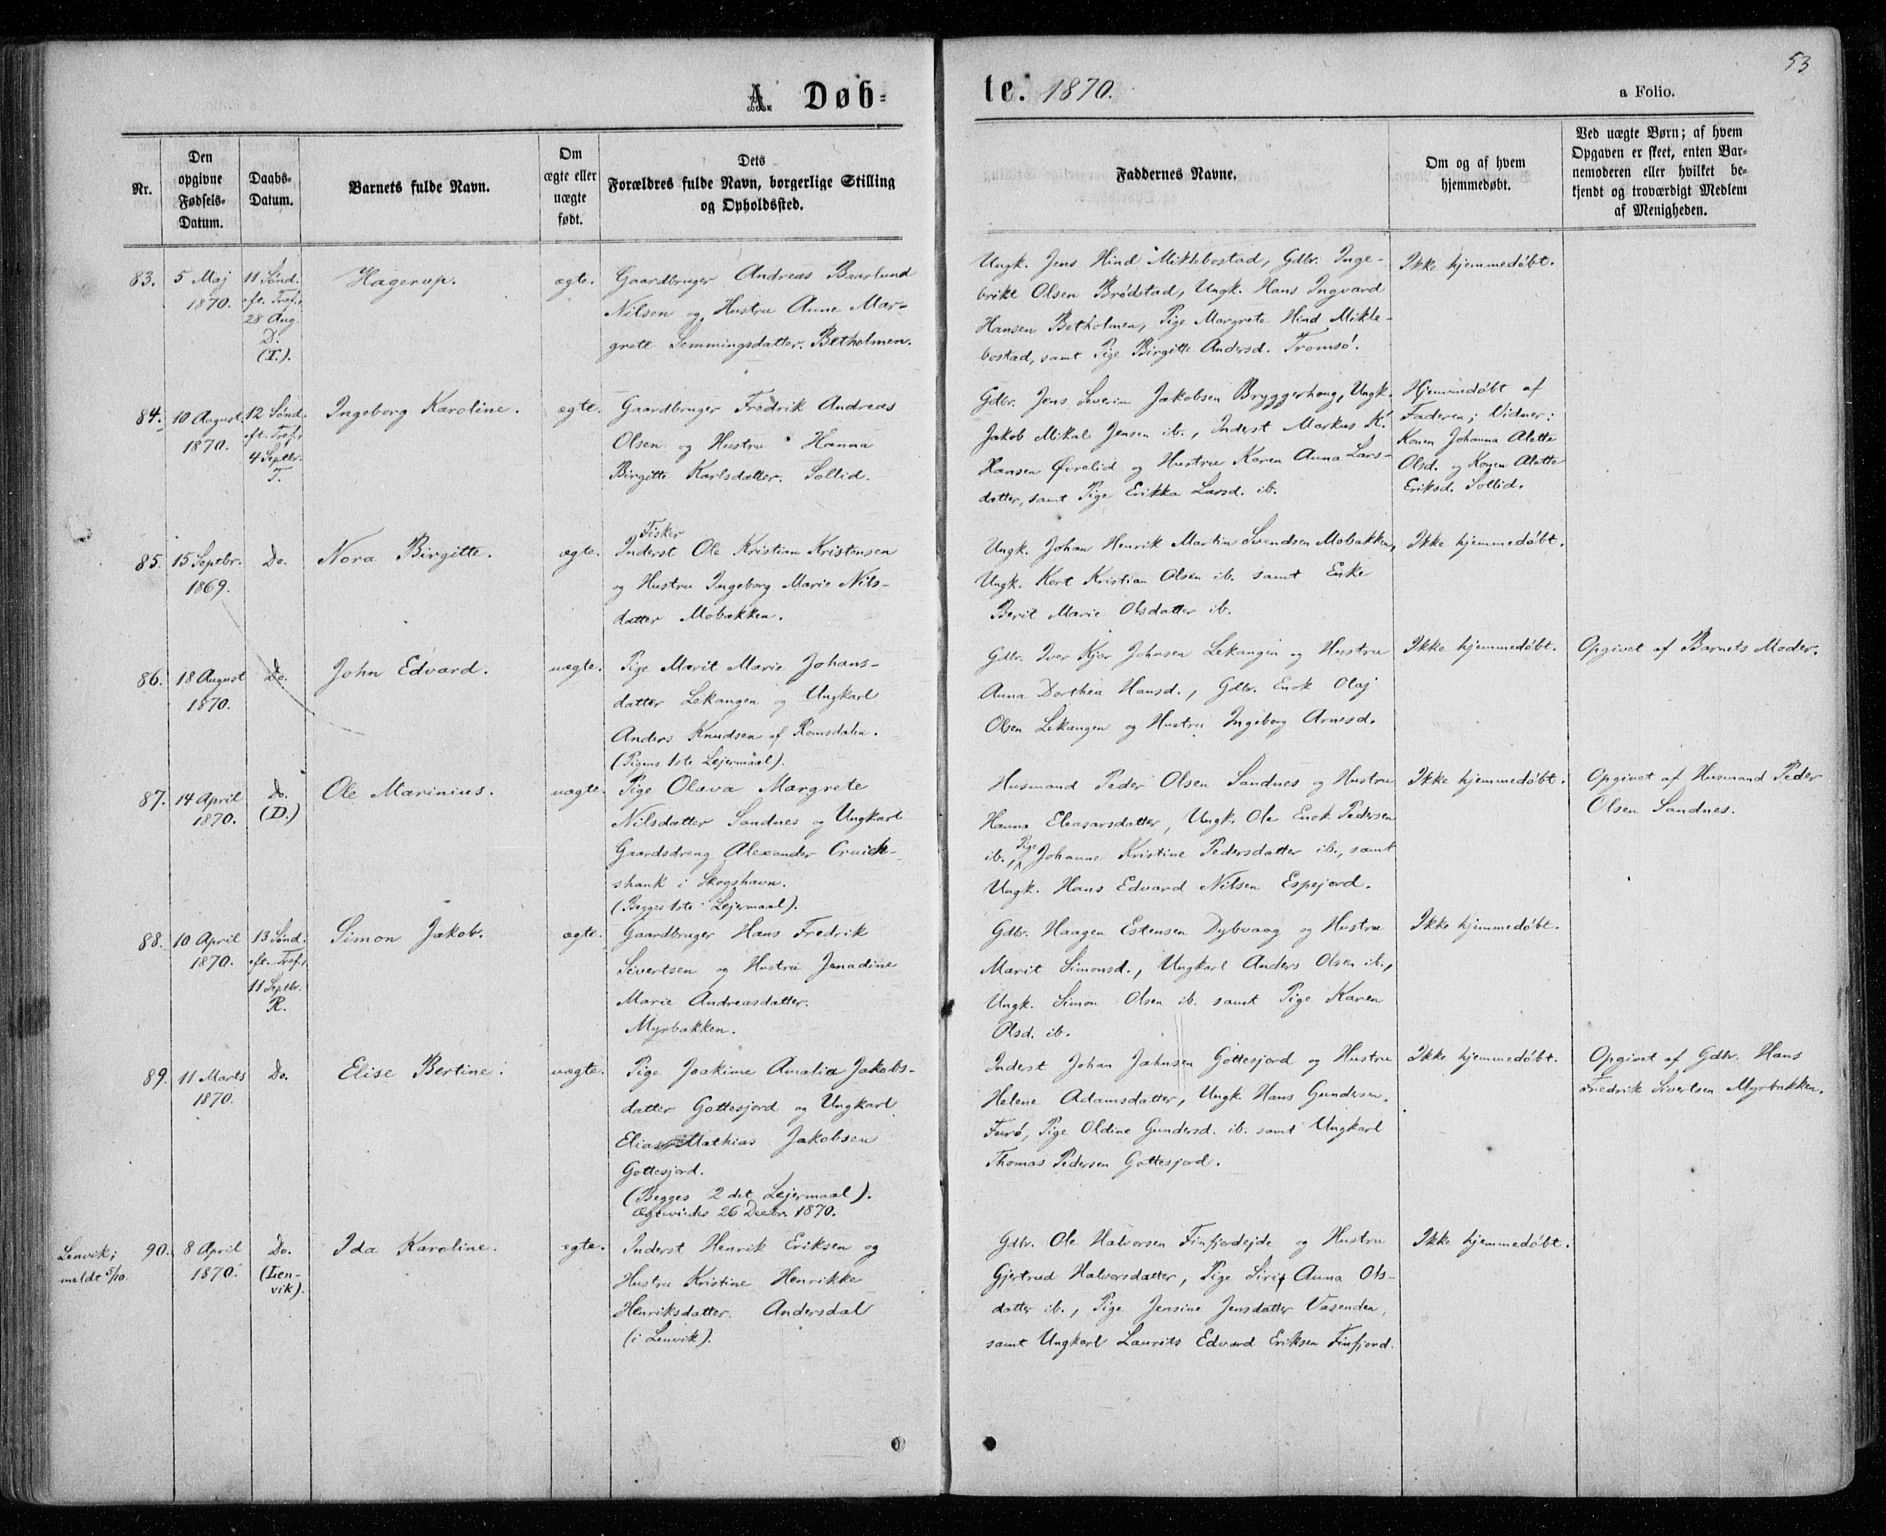 53
A. Døb=
te. 1870.
a Folio.
Nr.
Den
opgivne
Fødsels-
Datum.
Daabs-
Datum.
Barnets fulde Navn.
Om
ægte eller
uægte
født.
Dets
Forældres fulde Navn, borgerlige Stilling
og Opholdssted.
Faddernes Navne.
Om og af hvem
hjemmedøbt.
Ved uægte Børn; af hvem
Opgaven er skeet, enten Bar-
nemoderen eller hvilket be-
kjendt og troværdigt Medlem
af Menigheden.
83.
5 Maj
1870.
11 Sønd.
eft. Tref.,
28 Aug.
D.
(T.).
Hagerup.
ægte.
Gaardbruger Andreas Baarlund
Nilsen og Hustru Anne Mar-
grete Lemmingsdatter. Betholmen.
Ungk. Jens Hind Miklebostad, Gdbr. Inge-
brikt Olsen Brødstad, Ungk. Hans Ingvard
Hansen Betholmen, Pige Margrete Hind Mikle-
bostad, samt Pige Birgitte Andersd. Tromsø.
Ikke hjemmedøbt.
84.
10 August
1870.
12 Sønd.
eft. Tref.,
4 Septbr.
T.
Ingeborg Karoline.
ægte.
Gaardbruger Fredrik Andreas
Olsen og Hustru Hanna
Birgitte Karlsdatter. Sollid.
Gdbr. Jens Severin Jakobsen Bryggerhaug, Ungk.
Jakob Mikal Jensen ib., Inderst Markus K.
Hansen Øvrelid og Hustru Karen Anna Lars-
datter, samt Pige Erikka Larsd. ib.
Hjemmedøbt af
Faderen; Vidner:
Konen Johanna Alette
Olsd. og Konen Alette
Eriksd. Sollid.
85.
15 Septbr.
1869.
Do.
Nora Birgitte.
ægte.
Fisker
Inderst Ole Kristian Kristensen
og Hustru Ingeborg Marie Nils-
datter Mobakken.
Ungk. Johan Henrik Martin Svendsen Mobakken,
Ungk. Kort Kristian Olsen ib. samt Enke
Berit Marie Olsdatter ib.
Ikke hjemmedøbt.
86.
18 August
1870.
Do.
John Edvard.
uægte.
Pige Marit Marie Johans-
datter Lekangen og Ungkarl
Anders Knudsen af Romsdalen.
(Pigens 1ste Lejermaal).
Gdbr. Iver Kjær Johnsen Lekangen og Hustru
Anna Dorthea Hansd., Gdbr. Enok Olaj
Olsen Lekangen og Hustru Ingeborg Arnesd.
Ikke hjemmedøbt.
Opgivet af Barnets Moder.
87.
14 April
1870.
Do.
(D.)
Ole Marinius.
uægte.
Pige Olava Margrete
Nilsdatter Sandnes og Ungkarl
Gaardsdreng Alexander Cruick-
shank i Skogshavn.
(Begges 1ste Lejermaal).
Husmand Peder Olsen Sandnes og Hustru
Hanna Eleasarsdatter, Ungk. Ole Enok Pedersen
ib., Pige Johanne Kristine Pedersdatter ib., samt
Ungk. Hans Edvard Nilsen Espejord.
Ikke hjemmedøbt.
Opgivet af Husmand Peder
Olsen Sandnes.
88.
10 April
1870.
13 Sønd.
eft. Tref.,
11 Septbr.
R.
Simon Jakob.
ægte.
Gaardbruger Hans Fredrik
Sivertsen og Hustru Jenadine
Marie Andreasdatter.
Myrbakken.
Gdbr. Haagen Estensen Dybvaag og Hustru
Marit Simonsd., Ungkarl Anders Olsen ib.,
Ungk. Simon Olsen ib. samt Pige Karen
Olsd. ib.
Ikke hjemmedøbt.
89.
11 Marts
1870.
Do.
Elise Bertine.
uægte.
Pige Joakime Amalia Jakobs-
datter Gottesjord og Ungkarl
Elias Mathias Jakobsen
Gottesjord.
(Begges 2 det Lejermaal).
Ægteviede 26 Decbr. 1870.
Inderst Johan Jahnsen Gottesjord og Hustru
Helene Adamsdatter, Ungk. Hans Gundersen
Furø, Pige Oldine Gundersd. ib. samt Ungkarl
Thomas Pedersen Gottesjord.
Ikke hjemmedøbt.
Opgivet af Gdbr. Hans
Fredrik Sivertsen Myrbakken.
Lenvik;
meldt 5/10.
90.
8 April
1870.
Do.
(Len-
vik).
Ida Karoline.
ægte.
Inderst Henrik Eriksen og
Hustru Kristine Henrikke
Henriksdatter. Andersdal
(i Lenvik).
Gdbr. Ole Halvorsen Finfjordejde og Hustru
Gjertrud Halvorsdatter, Pige Siri Anna Ols-
datter ib., Pige Jensine Jensdatter Vasenden,
samt Ungkarl Laurits Edvard Eriksen Finfjord.
Ikke hjemmedøbt.